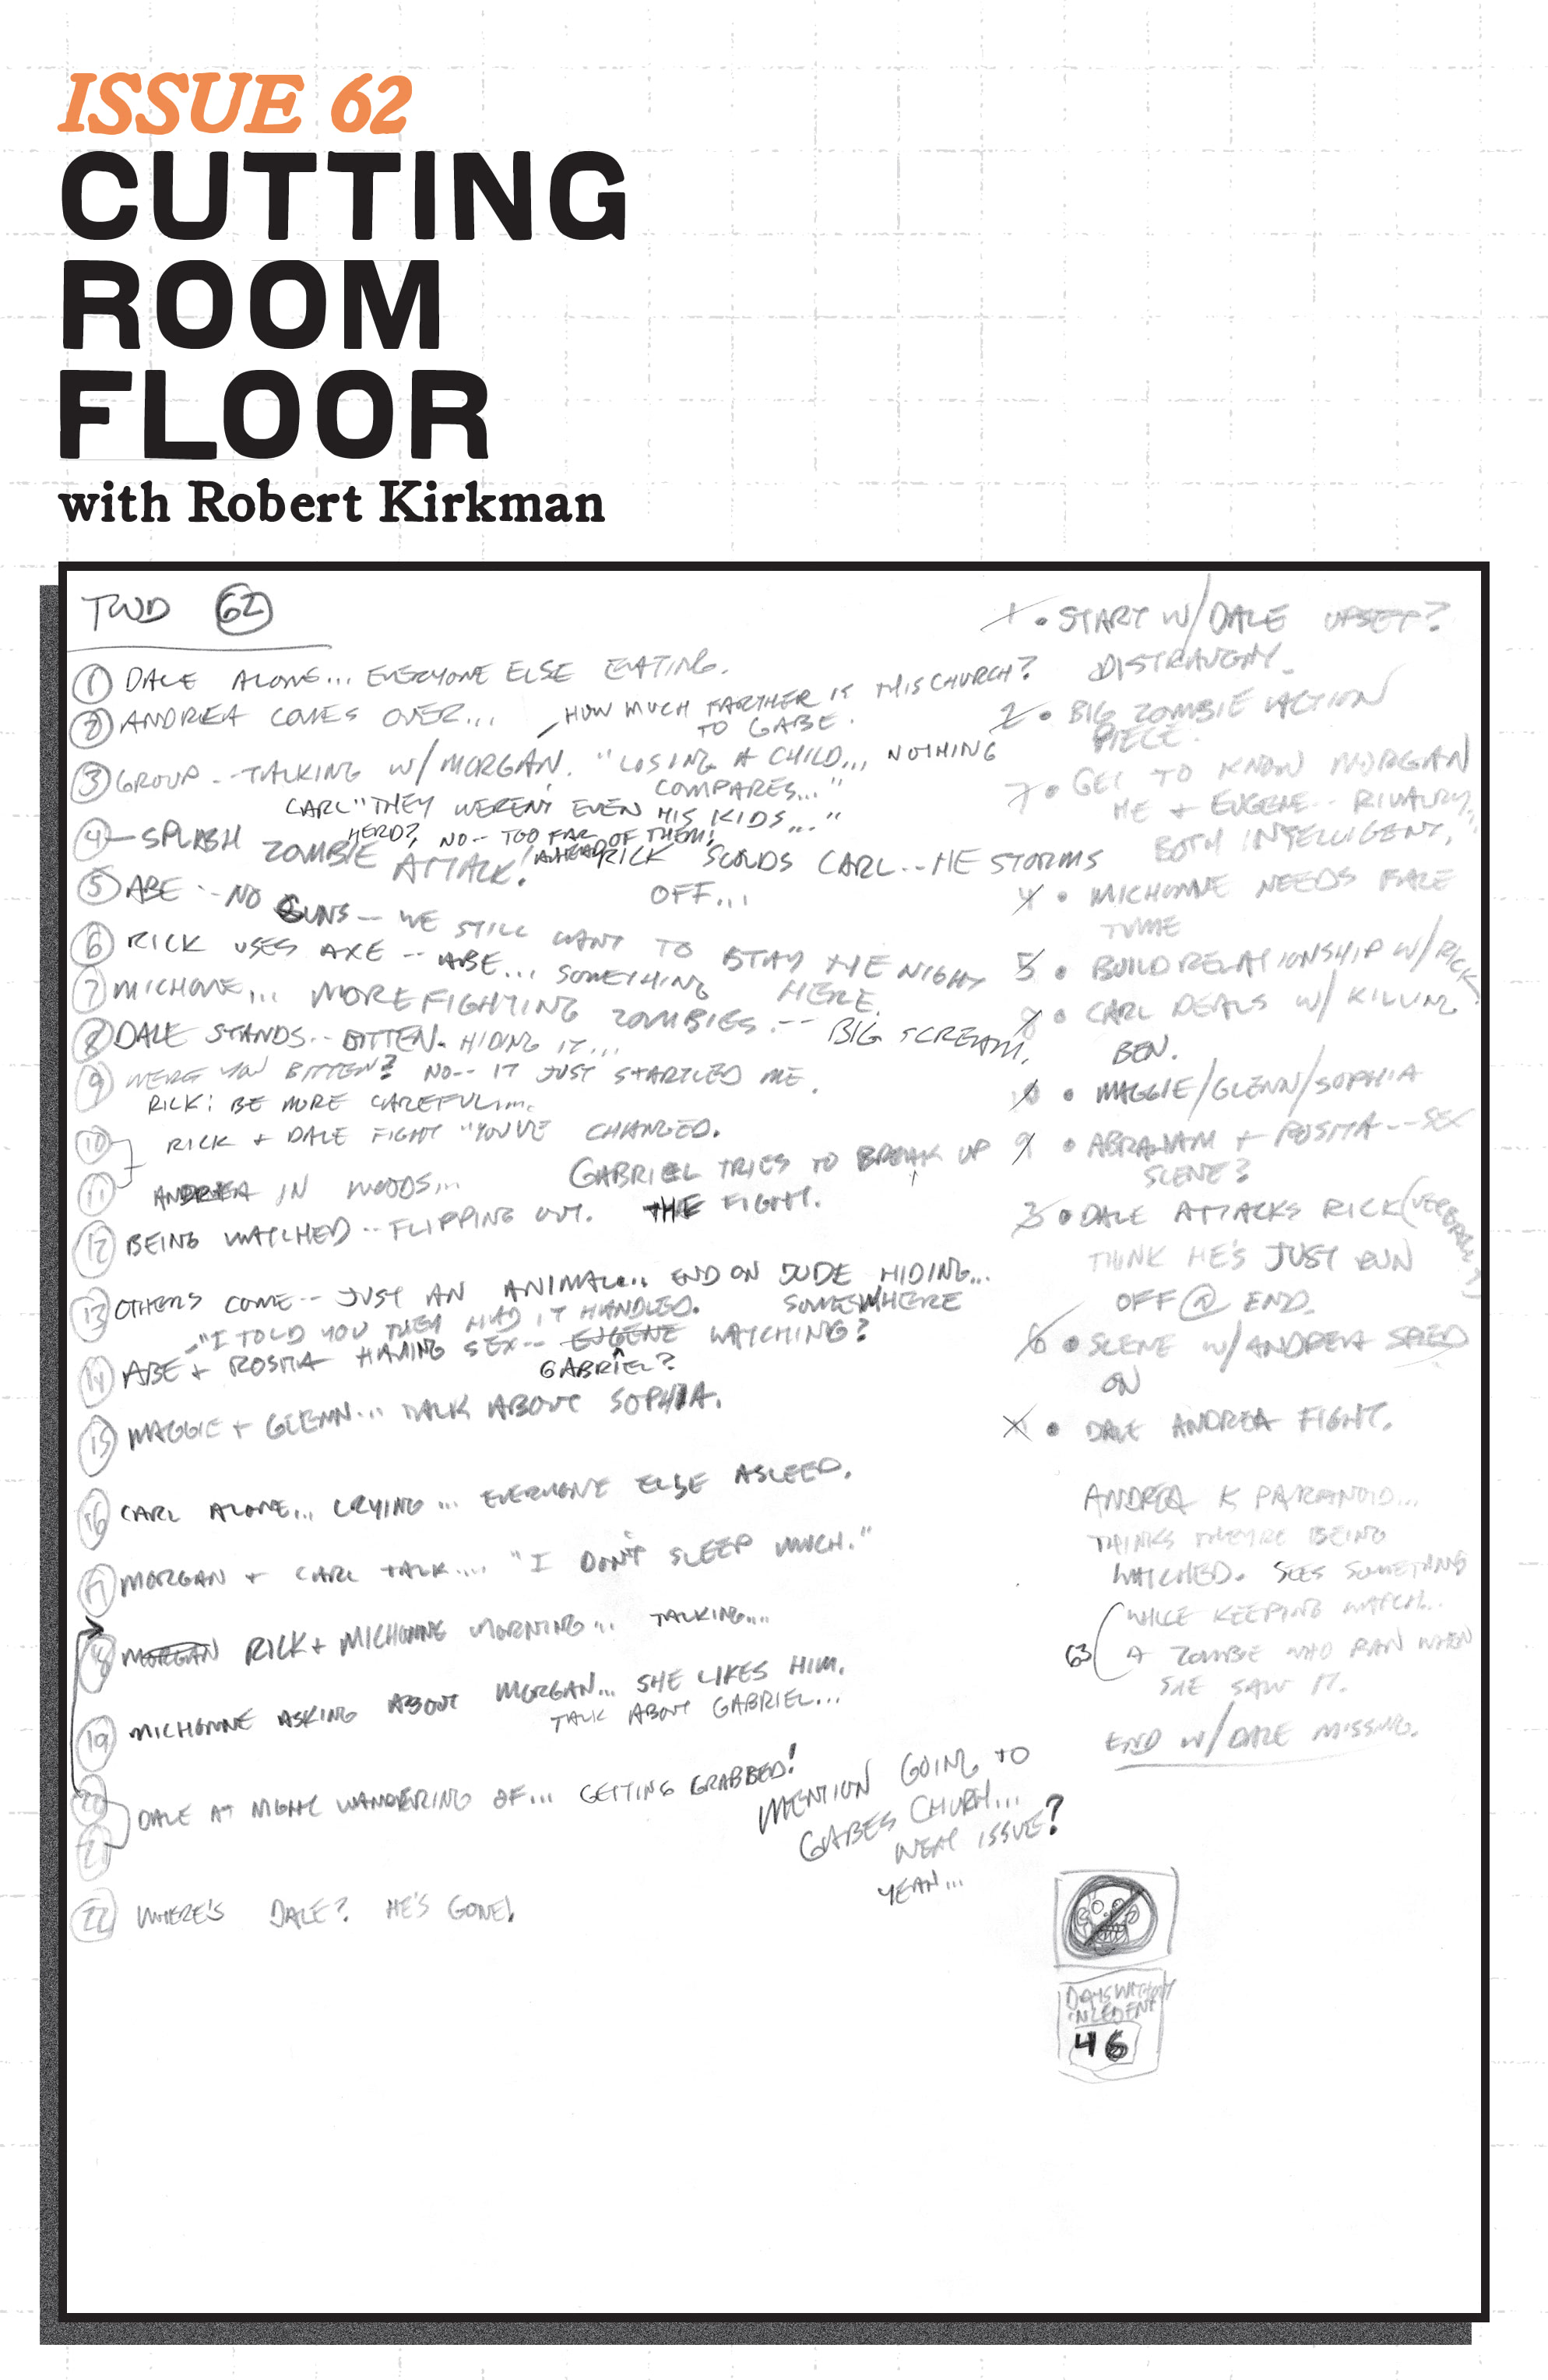 ISSUE 62
CUTTING
ROOM
FLOOR
with Robert Kirkman
TWD 62
1 DALE ALONE... EVERYONE ELSE EATING.
2 ANDREA COMES OVER...
HOW MUCH FARTHER IS THIS CHURCH?
TO GABE.
3 GROUP -- TALKING W/ MORGAN. "LOSING A CHILD... NOTHING
COMPARES..."
CARL "THEY WEREN'T EVEN HIS KIDS..."
HERD? NO -- TOO FAR
AHEAD OF THEM!
4 - SPLASH ZOMBIE ATTACK!
RICK SCOLDS CARL -- HE STORMS
OFF...
5 ABE -- NO GUNS -- WE STILL WANT TO STAY THE NIGHT
HERE.
6 RICK USES AXE -- ABE... SOMETHING
7 MICHONE... MORE FIGHTING ZOMBIES. --
BIG SCREAM.
8 DALE STANDS -- BITTEN. HIDING IT...
9 WERE YOU BITTEN? NO -- IT JUST STARTLED ME.
RICK: BE MORE CAREFUL...
10 RICK + DALE FIGHT "YOU'VE CHANGED.
GABRIEL TRIES TO BREAK UP
THE FIGHT.
11 ANDREA IN WOODS...
12 BEING WATCHED -- FLIPPING OUT.
13 OTHERS COME -- JUST AN ANIMAL... END ON DUDE HIDING...
SOMEWHERE
- "I TOLD YOU THEY HAD IT HANDLED.
14 ABE + ROSITA HAVING SEX -- EUGENE WATCHING?
GABRIEL?
15 MAGGIE + GLENN... TALK ABOUT SOPHIA.
16 CARL ALONE... CRYING... EVERYONE ELSE ASLEED.
17 MORGAN + CARL TALK.... "I DON'T SLEEP MUCH."
18 MORGAN RICK + MICHONNE MORNING... TALKING...
19 MICHONNE ASKING ABOUT MORGAN... SHE LIKES HIM.
TALK ABOUT GABRIEL...
20
21 DALE AT NIGHT WANDERING OF... GETTING GRABBED!
MENTION GOING TO
GABES CHURH...
NEXT ISSUE?
YEAH...
22 WHERE'S DALE? HE'S GONE!
1 • START W/ DALE UPSET?
DISTRAUGHT.
2 • BIG ZOMBIE ACTION
PIECE.
7 • GET TO KNOW MORGAN
HE + EUGENE -- RIVALRY...
BOTH INTELLIGENT,
4 • MICHONNE NEEDS FACE
TIME
5 • BUILD RELATIONSHIP W/ RICK
8 • CARL DEALS W/ KILLING
BEN.
10 • MAGGIE/GLENN/SOPHIA
9 • ABRAHAM + ROSITA -- SEX
SCENE?
3 • DALE ATTACKS RICK (VERBALLY)
THINK HE'S JUST RUN
OFF @ END.
6 • SCENE W/ ANDREA SPIED
ON
• DALE ANDREA FIGHT.
ANDREA IS PARANOID...
THINKS THEY'RE BEING
WATCHED. SEES SOMETHING
WHILE KEEPING WATCH...
63 A ZOMBIE WHO RAN WHEN
SHE SAW IT.
END W/ DALE MISSING.
DAYS WITHOUT
INCEDENT
46